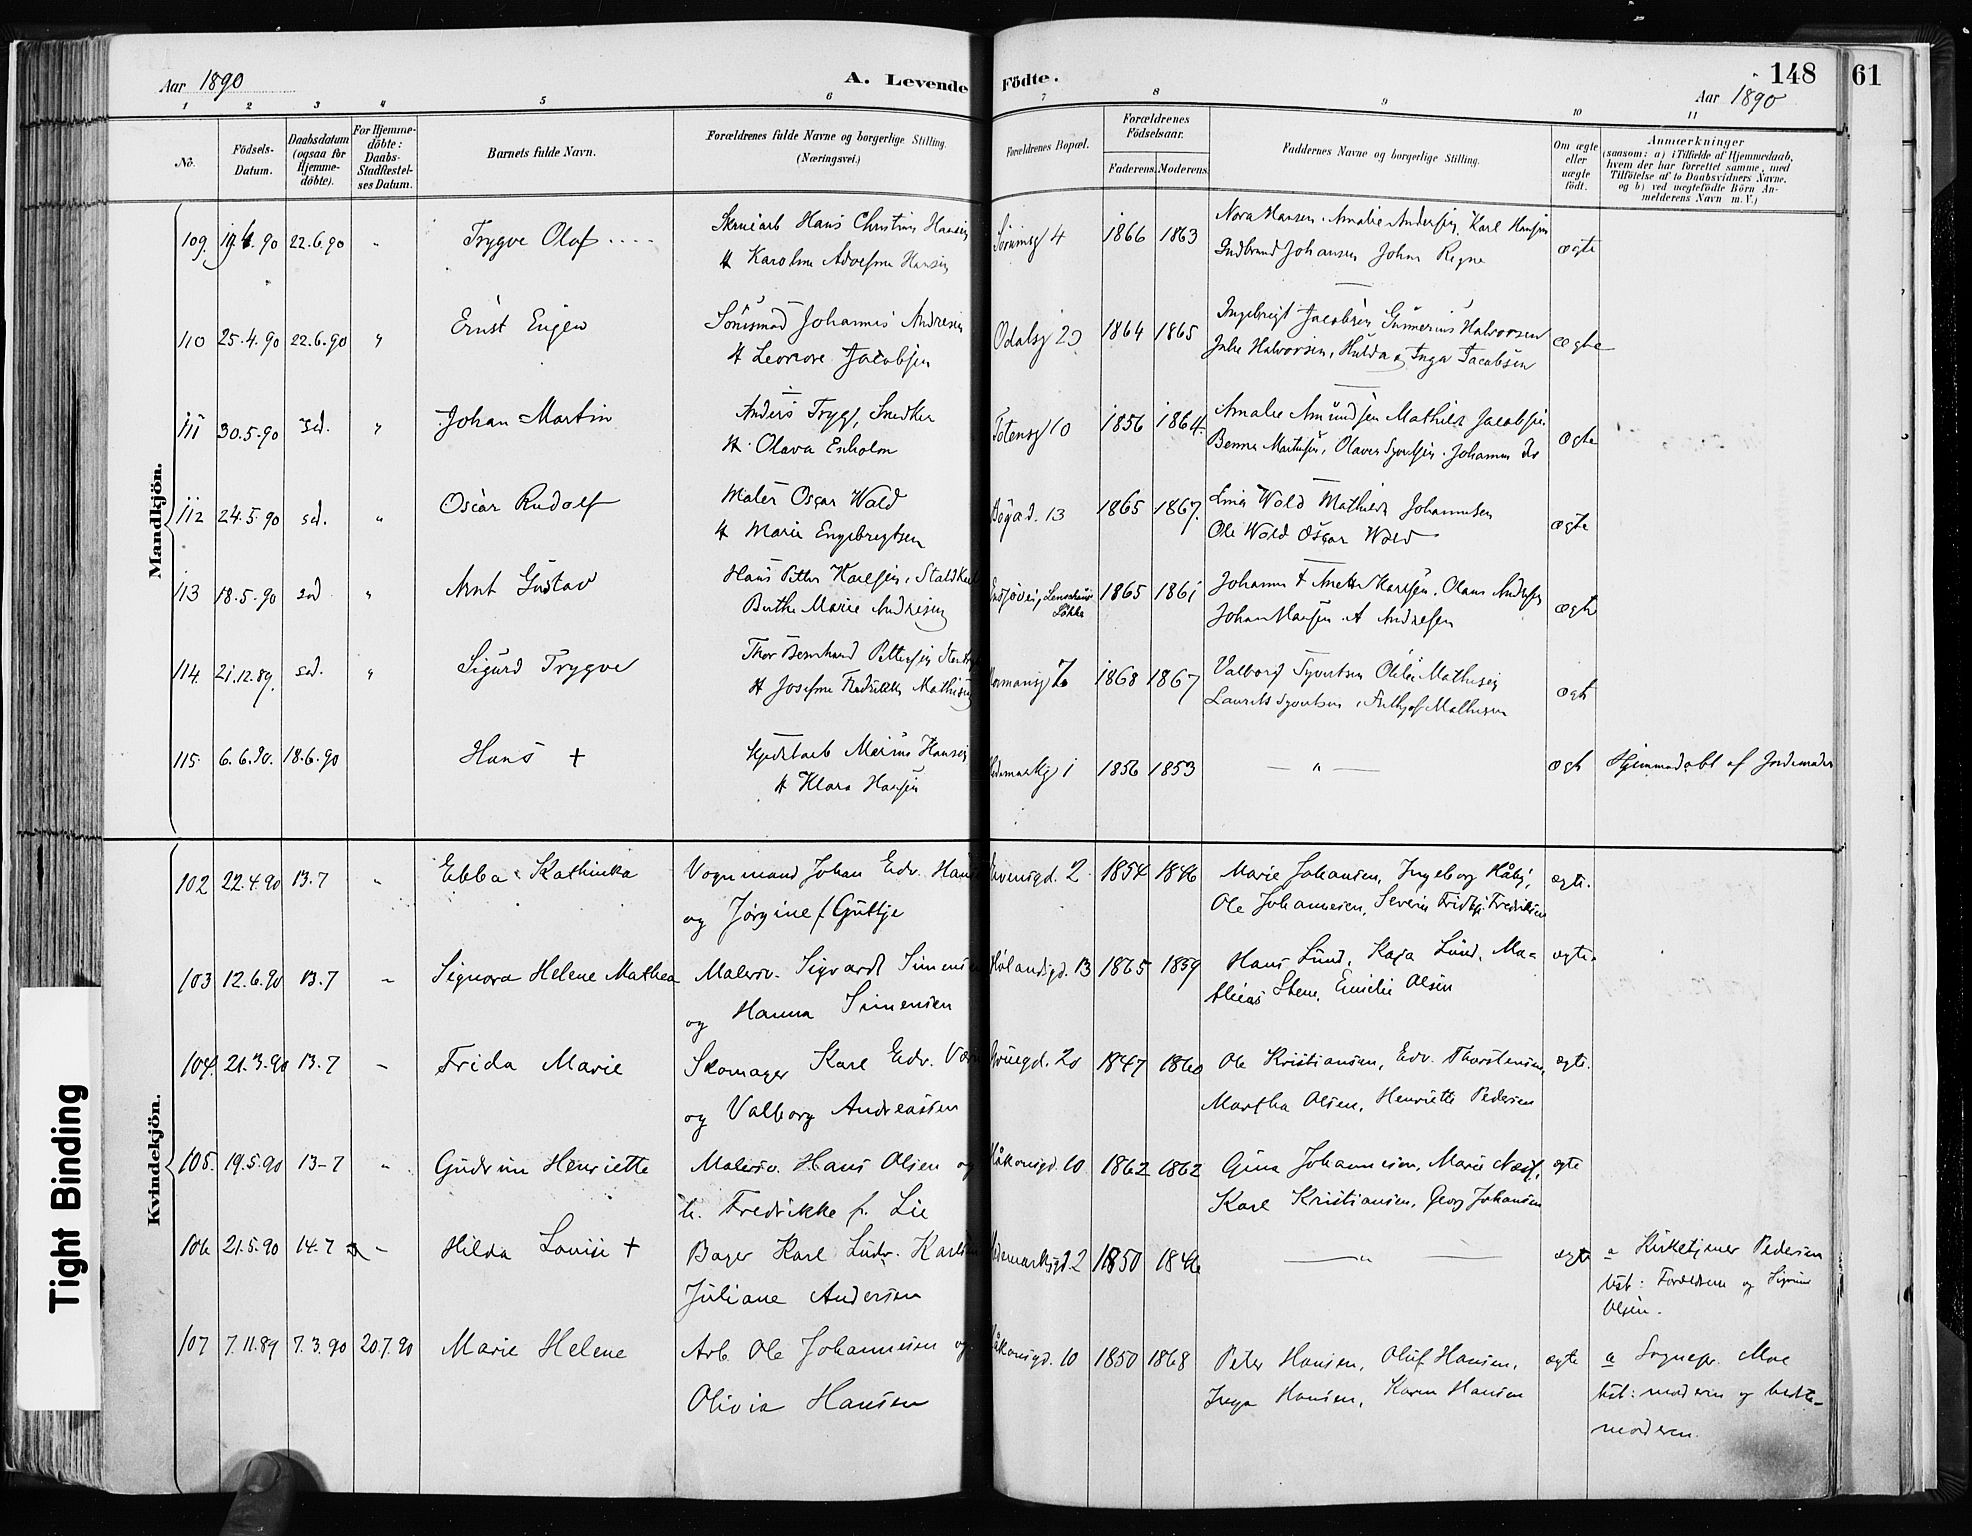 Aar 1890
A. Levende Födte.
Aar 1890
148
61
1 2 3 4 5 6 7 8 9 10 11
No.
Födsels-Datum.
Daabsdatum (ogsaa for Hjemme-döbte).
For Hjemme-döbte: Daabs-Stadfæstel-ses Datum.
Barnets fulde Navn.
Forældrenes fulde Navne og borgerlige Stilling. (Næringsvei.)
Forældrenes Bopæl.
Forældrenes Födselsaar.
Faderens. Moderens.
Faddernes Navne og borgerlige Stilling.
Om ægte eller uægte födt.
Anmærkninger
(saasom: a) i Tilfælde af Hjemmedaab, hvem der har forrettet samme, med Tilföielse af to Daabsvidners Navne. og b) ved uægtefödte Börn An-melderens Navn m. V.)
Mandkjön.
109. 22.6.90 " Trygve Olof Hans Christian Hansen 4 1866 1863 Nora Hansen. Amalie Andersen, Karl Hansen ægte
H Karoline Hansen Gudbrand Johansen Johan
110 25.4.90 22.6.90 " Ernst Eugen Johannes Andresen Odalsg 20 1864 1865 Ingebrigt Jacobsen Gunnerius Halvorsen ægte
H Leonore Jacobsen Julie Halvorsen, Hulda og Inga Jacobsen
111 30.5.90 sd. " Johan Martin Anders Trygg, Snedker Totensg 10 1856 1864. Amalie Amundsen Mathilde Jacobsen ægte
H. Olava Enholm
112 24.5.90 sd. " Oscar Rudolf Maler Oscar Wold Bögad. 13 1865 1867. Wold Mathilde Johannesen ægte
H Marie Engebregtsen Ole Wold Oscar Wold
113 18.5.90 sd " Arnt Gustav Hans Petter Karlsen, 1865 1861 Johanne Olaus Andersen ægte
Berthe Marie Andresen Johan Hansen. A Andresen
114. 21.12.89. sd. " Sigurd Trygve Thor Bernhard Pettersen 1868 1867 Valborg Syvertsen Mathisen ægte
H Josefine Fredrikke Mathisen Laurits Syvertsen, Frithjof Mathisen
115. 6.6.90. 18.6.90 Hans + Marius Hansen Hedemarksg 1 1856 1853 — " — ægte Hjemmedøbt af Jordemoder
H Klara Hansen
Kvindekjön.
102 22.4.90 13.7 " Ebba Kathinka Vognmand Johan Edv. Hansen 2 1854 1846 Marie Johansen, Ingeborg Håby, ægte.
og Jørgine f. Guttje Ole Johannesen, Severin Fredriksen
103 12.6.90 13.7 – Signora Helene Mathea Malersv. Sigvardt Simensen Hølandsgd. 13 1865 1859 Hans Lund, Kaja Lund, Ma= ægte.
og Hanna Simensen thias Stene, Emilie Olsen
104. 21.3.90 13.7 – Frida Marie Skomager Karl Edv. Gruegd. 20 1847 1860 Ole Kristiansen, Edv. Thorstensen, ægte.
og Valborg Andreassen Martha Olsen, Henriette Pedersen
105. 19.5.90 13-7 " Gudrun Henriette Malersv. Hans Olsen og Håkonsgd. 10 1862 1862 Gina Johannesen, Marie Næss, ægte
h. Fredrikke f. Lie Karl Kristiansen, Georg Johansen
106 21.5.90 14.7 – Hilda Lovise + Bager Karl Ludv. Karlsen Hedemarksgd 2 1850 1846 — " — ægte a Kirketjener Pedersen
Juliane Andersen test: Forældrene og Signe
Olsen.
107 7.11.89 7.3.90 20.7.90 Marie Helene Arb. Ole Johannesen og Håkonsgd. 10 1850 1868 Peter Hansen, Oluf Hansen, ægte a Sognepr. Moe
Olivia Hansen Inga Hansen, Karen Hansen test: moderen og beste-
moderen.
Tight Binding